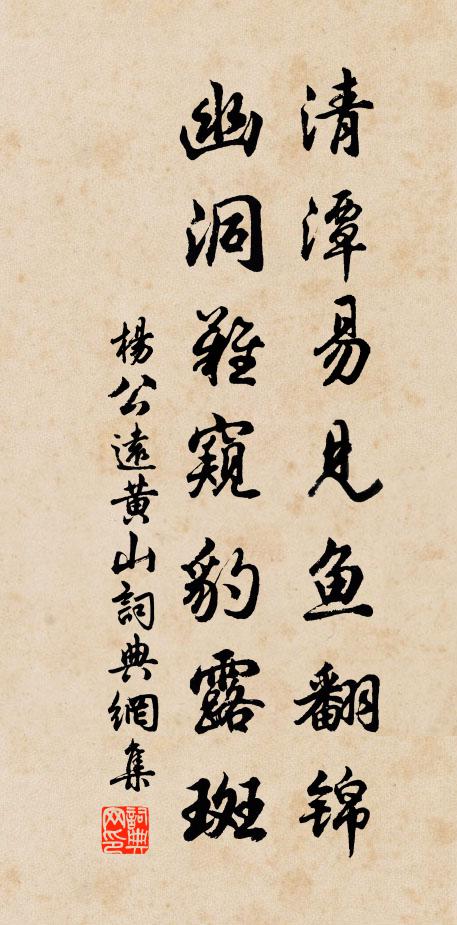 清潭易見鱼翻锦
幽洞難窺豹露斑
楊公遠黄山詞典網集
詞典网印